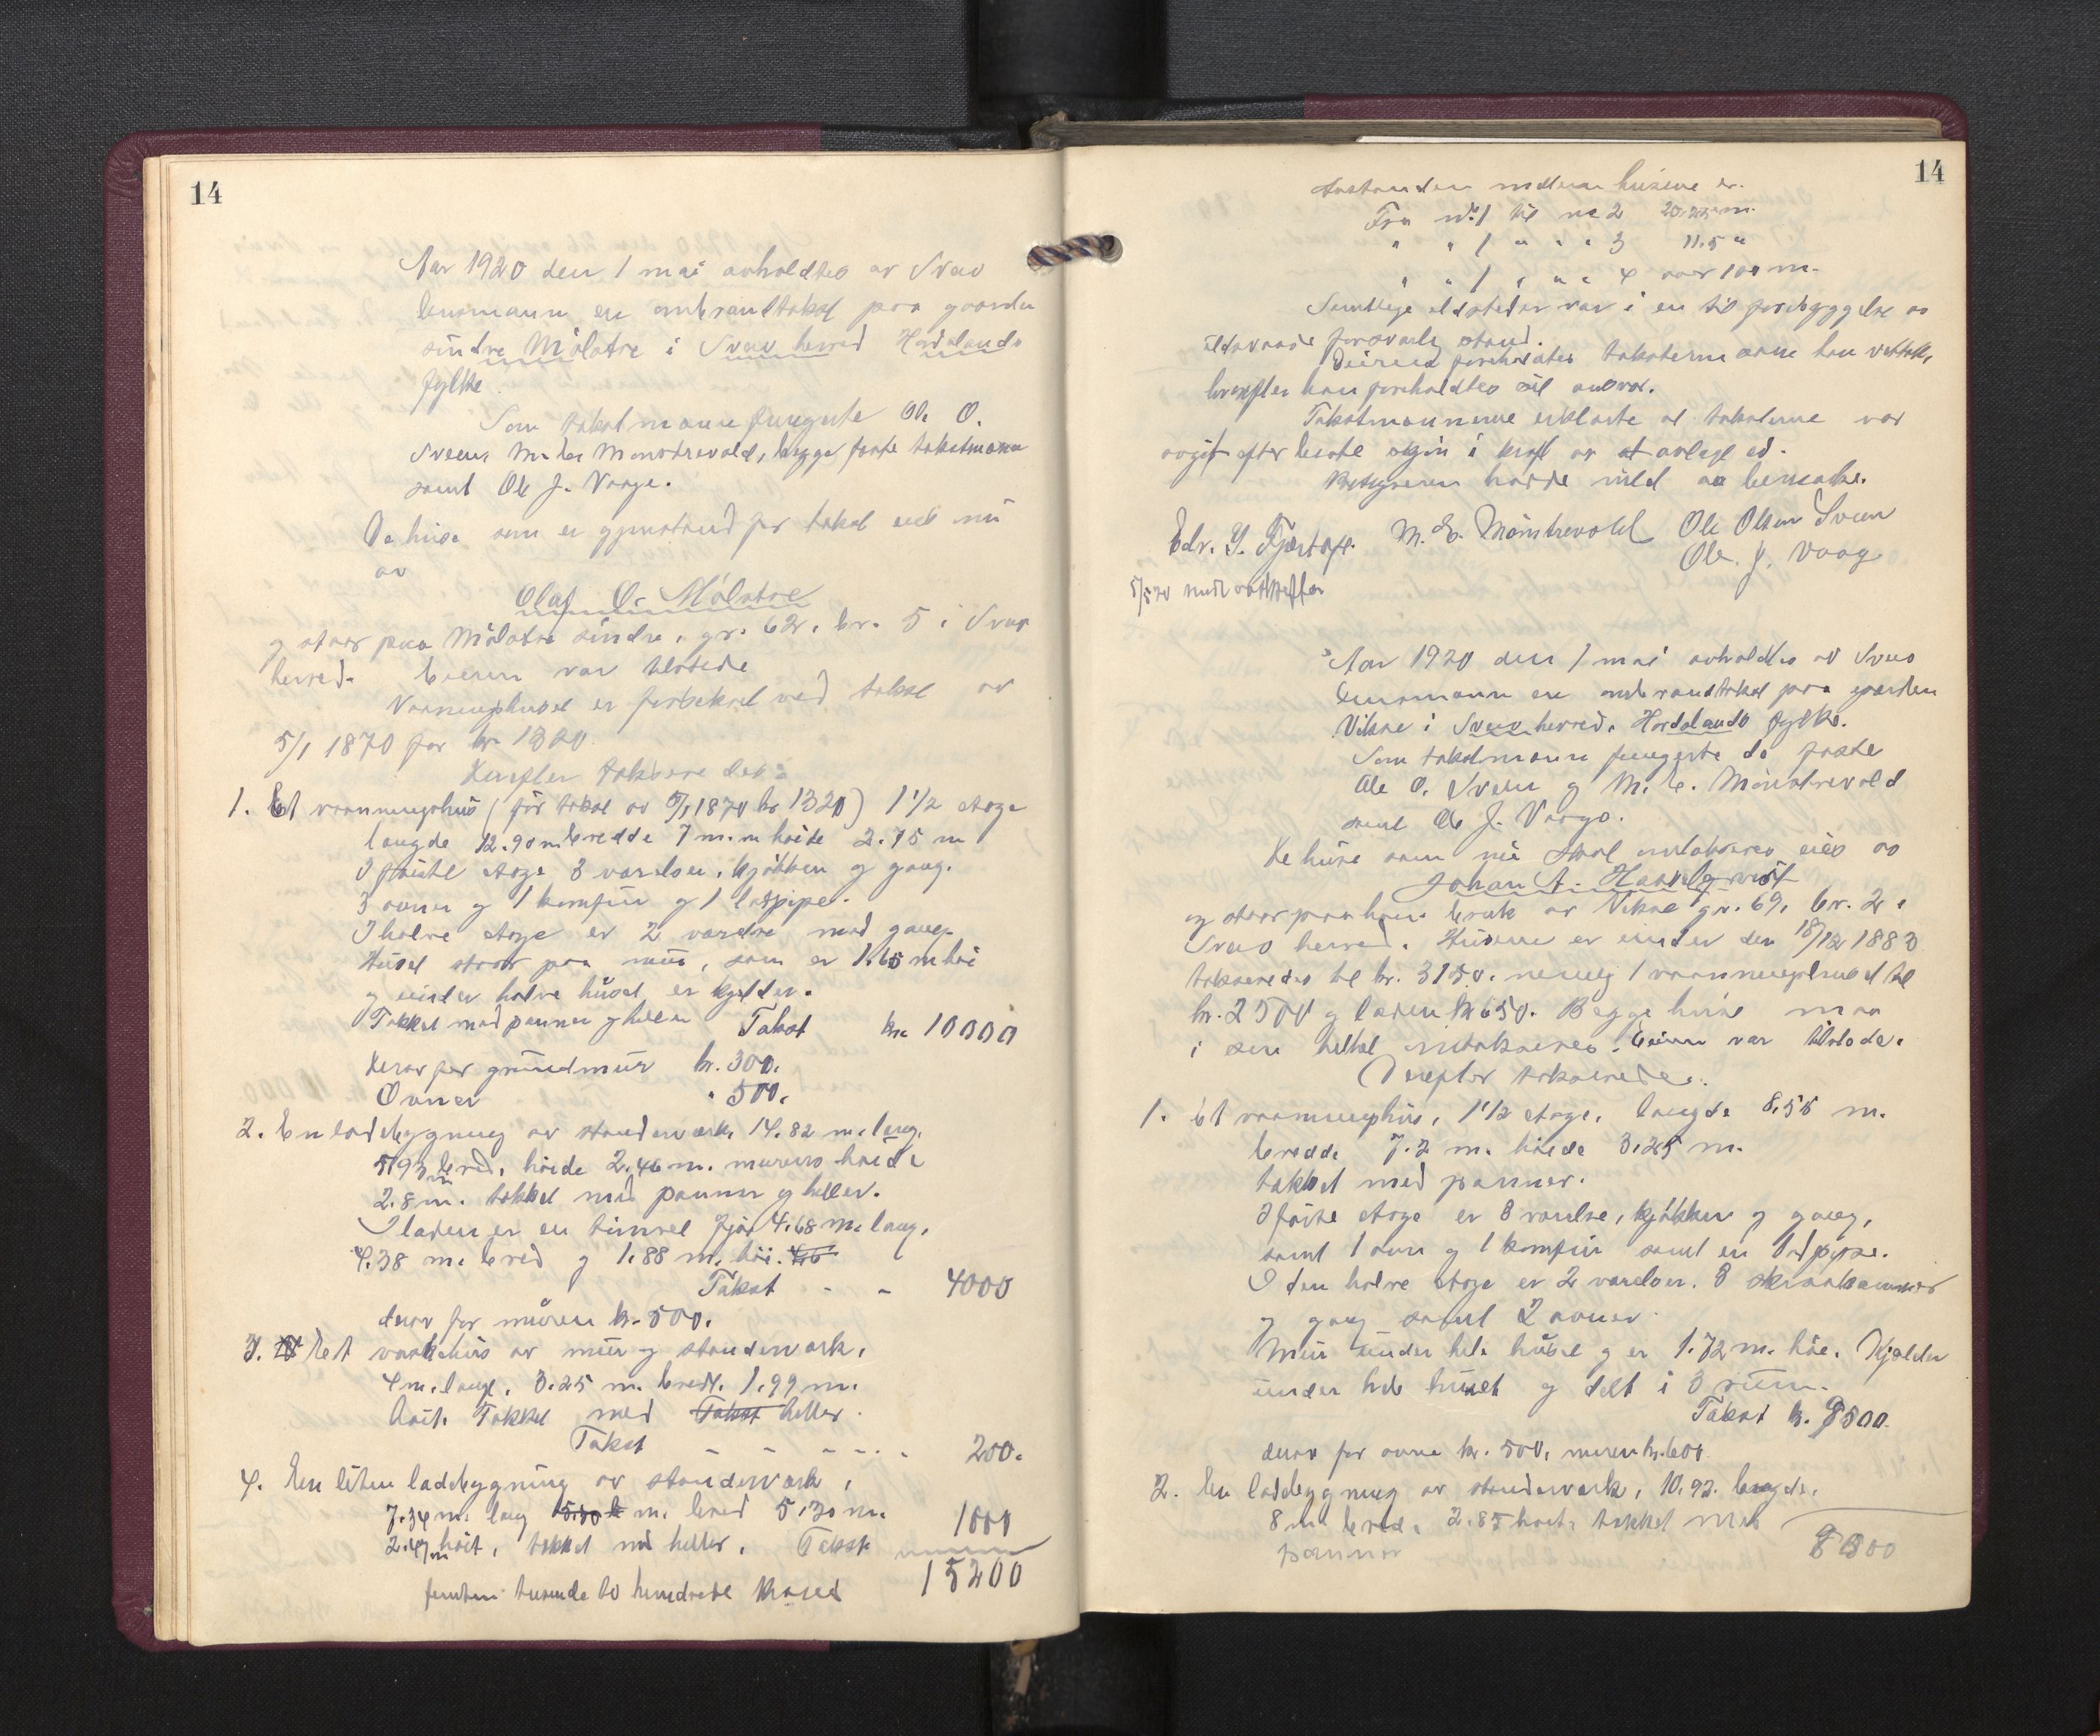 14
Aar 1920 den 1 mai avholdtes av Sveio
lensmann en ombrandtakst paa gaarden
sindre Mölstre i Sveio herred Hordalands
fylke.
Som takstmænn fungerte Ole O.
Sveen M. E. Mönstrevold, begge faste takstmænn
samt Ole J. Vaage.
De huse som er gjenstand for takst eies nu
av
Olaf O. Mölstre
og staar paa Mölstre söndre, gr. 62, br. 5 i Sveio
herred. Eieren var tilstede
Vaaningshuset er forsikret ved takst av
5/1 1870 for kr. 1320
Herefter takseredes:
1. Et vaaningshus (för takst av 5/1 1870 kr 1320) 1 1/2 etage
længde 12.90 m bredde 7 m. m höide 2.75 m
I förste etage 3 værelser, kjökken og gang.
3 ovner og 1 komfür og 1 pipe.
I halve etage er 2 værelse med gang.
Huset staar paa mür, som er 1.65 m höi
og under halve huset er kjelder.
Tækket med panner og heller Takst kr. 10000
Herav for grundmür kr. 300.
Ovner " 500.
2. En ladebygning av stenderverk, 14.82 m. lang,
5.93 m bred, höide 2.46 m. murens höide
2.8 m. tækket med panner og heller.
I laden er en timret fjös 4.68 m. lang,
4.38 m. bred og 1.88 m. höi.
Takst - - 4000
derav for müren kr. 500.
3. Et vaskehus av mür og stenderverk,
4 m. langt, 3.25 m. bredt. 1.99 m.
höit. Tækket med Takst heller.
Takst - - - - - 200.
4. En liten ladebygning av stenderverk,
7.34 m. lang 5.30 m. bred 5.30 m.
2.47 m höit, tækket med heller. Takst 1000
femten tusende to hundrede kroner 15200
14
Avstanden mellem husene er.
Fra no 1 til no 2 20.25 m.
" " 1 " " " 3 11.5 "
" " 1 " " " 4 over 100 m.
Samtlige ildsteder var i en til forebyggelse av
ildsvaade forsvarlig stand.
Eieren forholdtes taksterne som han vedtok,
hvorefter han foreholdtes sit ansvar.
Takstmænnene erklærte at taksterne var
avgit efter beste skjön i kraft av at avlegt ed.
Bestyreren hadde intet at bemerke.
Edv. Y. Fjærtoft. M. E. Mönstrevold Ole Olsen Sveen
Ole. J. Vaag
5/5 20
Aar 1920 den 1 mai avholdtes av Sveio
lensmann en ombrandtakst paa gaarden
Vikse i Sveio herred, Hordalands fylke.
Som takstmænn fungerte de faste
Ole O. Sveen og M. E. Mönstrevold
samt Ole J. Vaage.
De huse som nu skal omtakseres eies av
Johan A. Haselqvist
og staar paa hans bruk av Vikse gr. 69, br. 2 i
Sveio herred. Husene er under den 18/12 1883
takseredes til kr. 3150. nemlig 1 vaaningshuset til
kr. 2500 og laden kr 650. Begge huse maa
i sin helhet omtakseres. Eieren var tilstede.
Derefter takseredes:
1. Et vaaningshus, 1 1/2 etage, længde 8.55 m.
bredde 7.2 m. höide 3.25 m.
tækket med panner.
I förste etage er 3 værelse, kjökken og gang,
samt 1 ovn og 1 komfür samt en pipe.
I den halve etage er 2 værelser. 3 skraakammer
og gang samt 2 ovner.
Mür under hele huset og er 1.72 m. höi. Kjelder
under hele huset og delt i 3 rum.
Takst kr. 8500.
derav for ovne kr. 500, muren kr. 600
2. En ladebygning av stenderverk, 10.92. længde,
8 m bred. 2.85 höit, tækket med
panner 8300